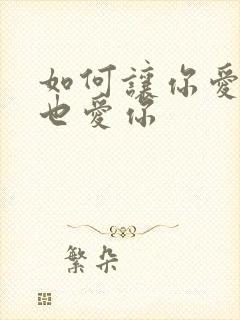 如何讓你愛
也愛你
繁朵